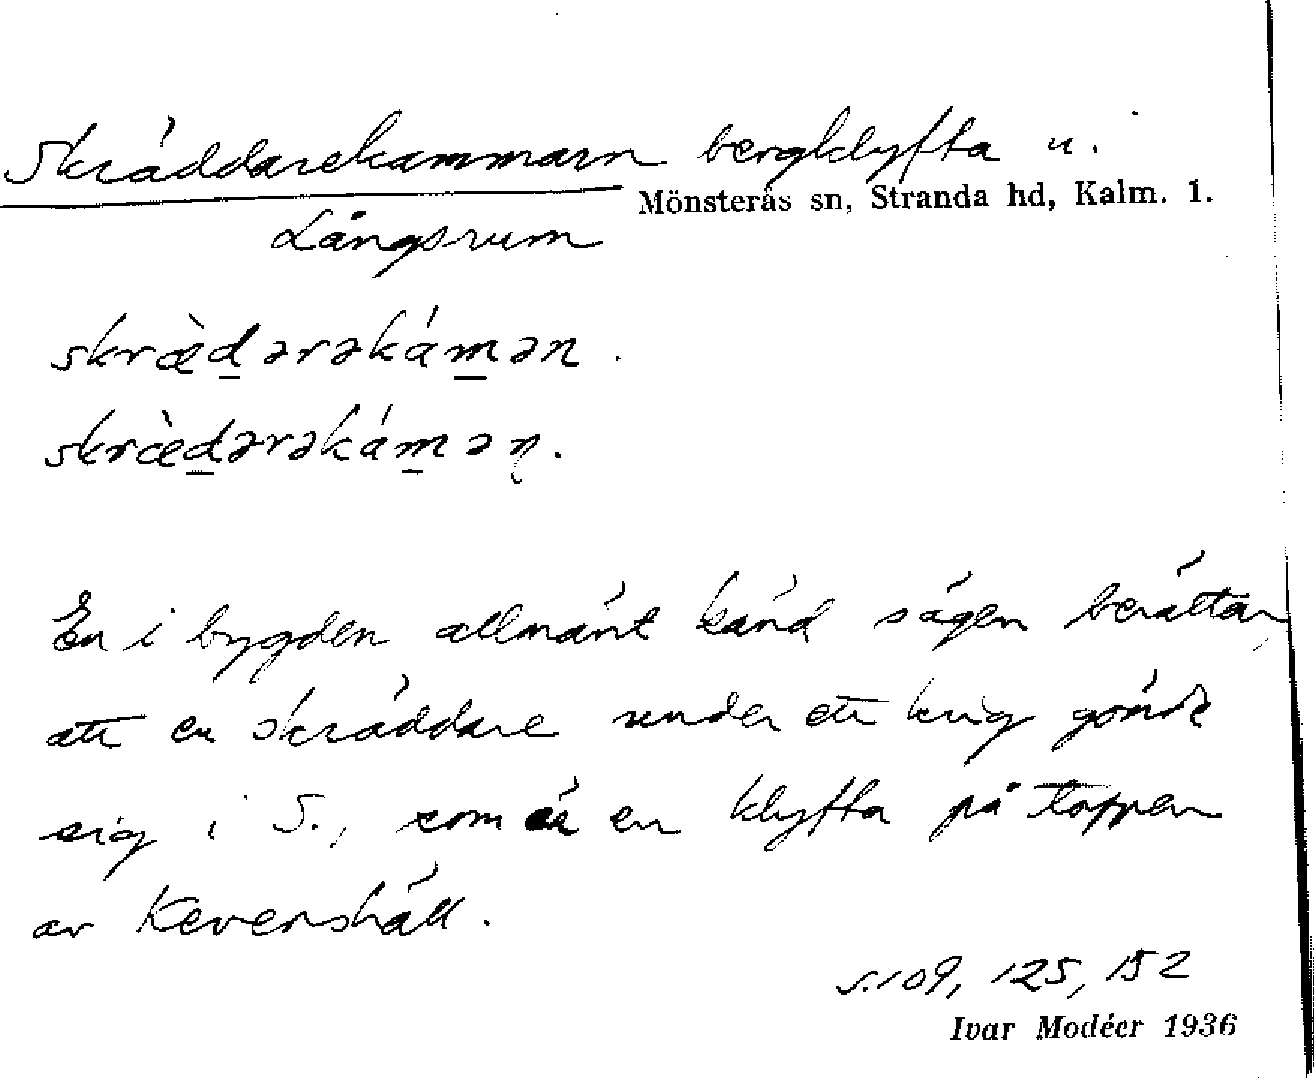 Skräddarekammarn bergklyfta u.
Mönsterås sn, Stranda hd, Kalm. l.
Långsrum
skræ̀d̲ərəkám̲ən.
skræ̀d̲ərəkám̲əṇ.
En i bygden allmänt känd sägen berättar,
att en skräddare under ett krig gömde
sig i S., som är en klyfta på toppen
av Kevershäll.
s. 109, 125, 152
Ivar Modéer 1936